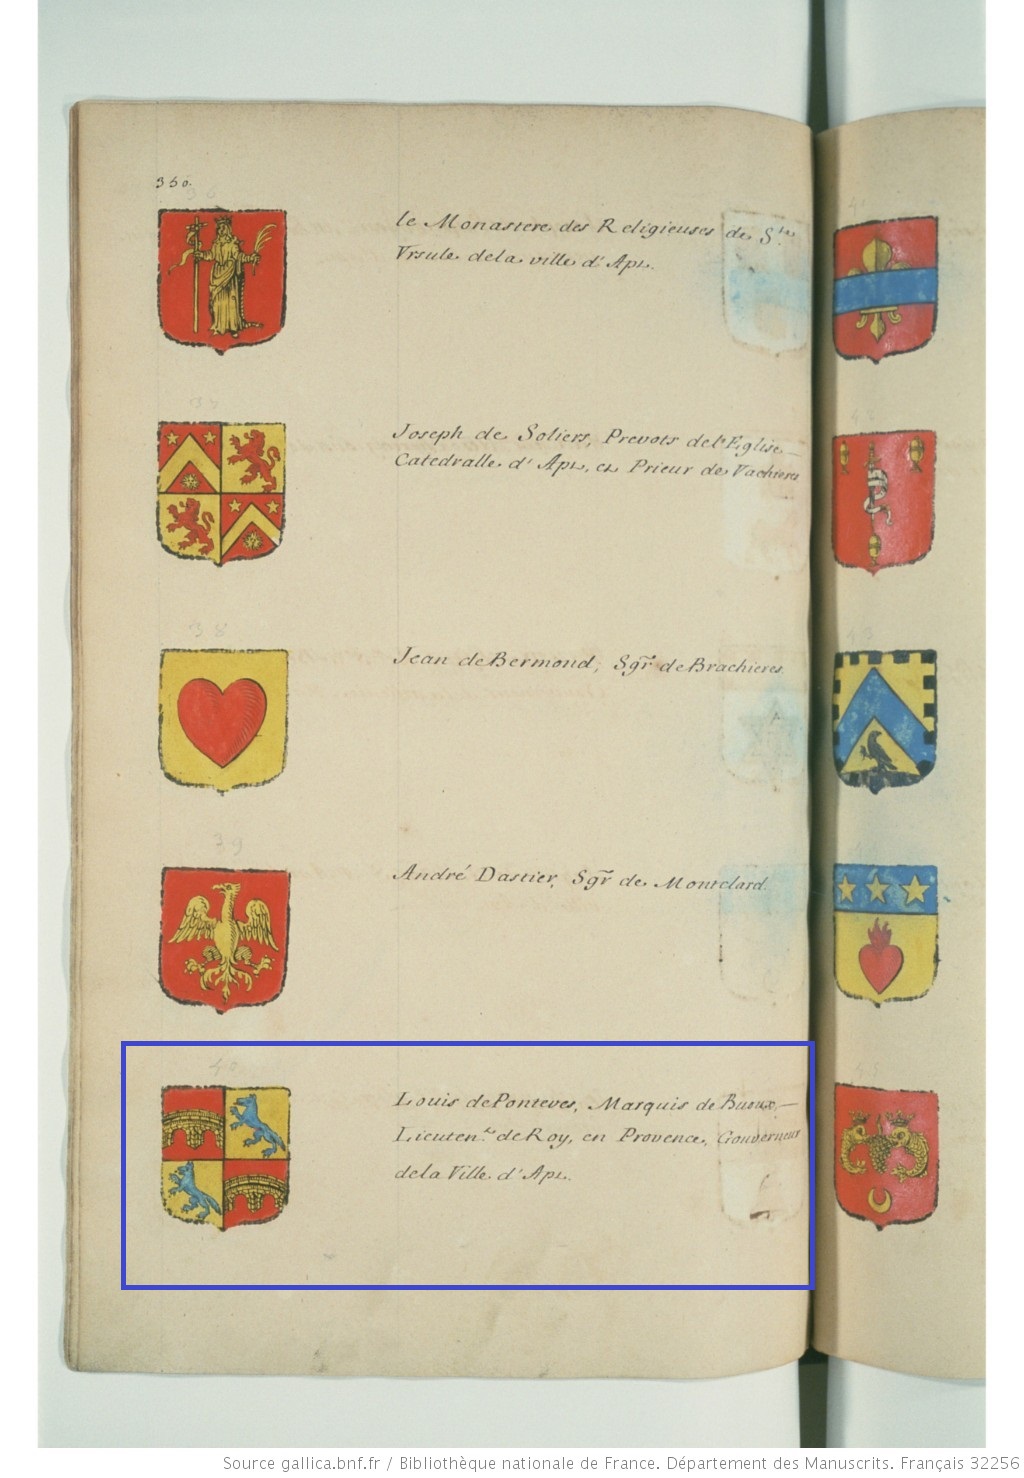 350.
36
le Monastere des Religieuses de Ste
Vrsule dela ville d'Apt.
37
Joseph de Soliers, Prevots de l'Eglise
Catedralle d'Apt, et Prieur de Vachieres
38
Jean de Bermond, Sgr de Brachieres.
39
André Dastier, Sgr de Montclard.
40
Louis de Ponteves, Marquis de Buoux,
Lieuten.t de Roy, en Provence, Gouverneur
dela Ville d'Apt.
Source gallica.bnf.fr / Bibliothèque nationale de France. Département des Manuscrits. Français 32256